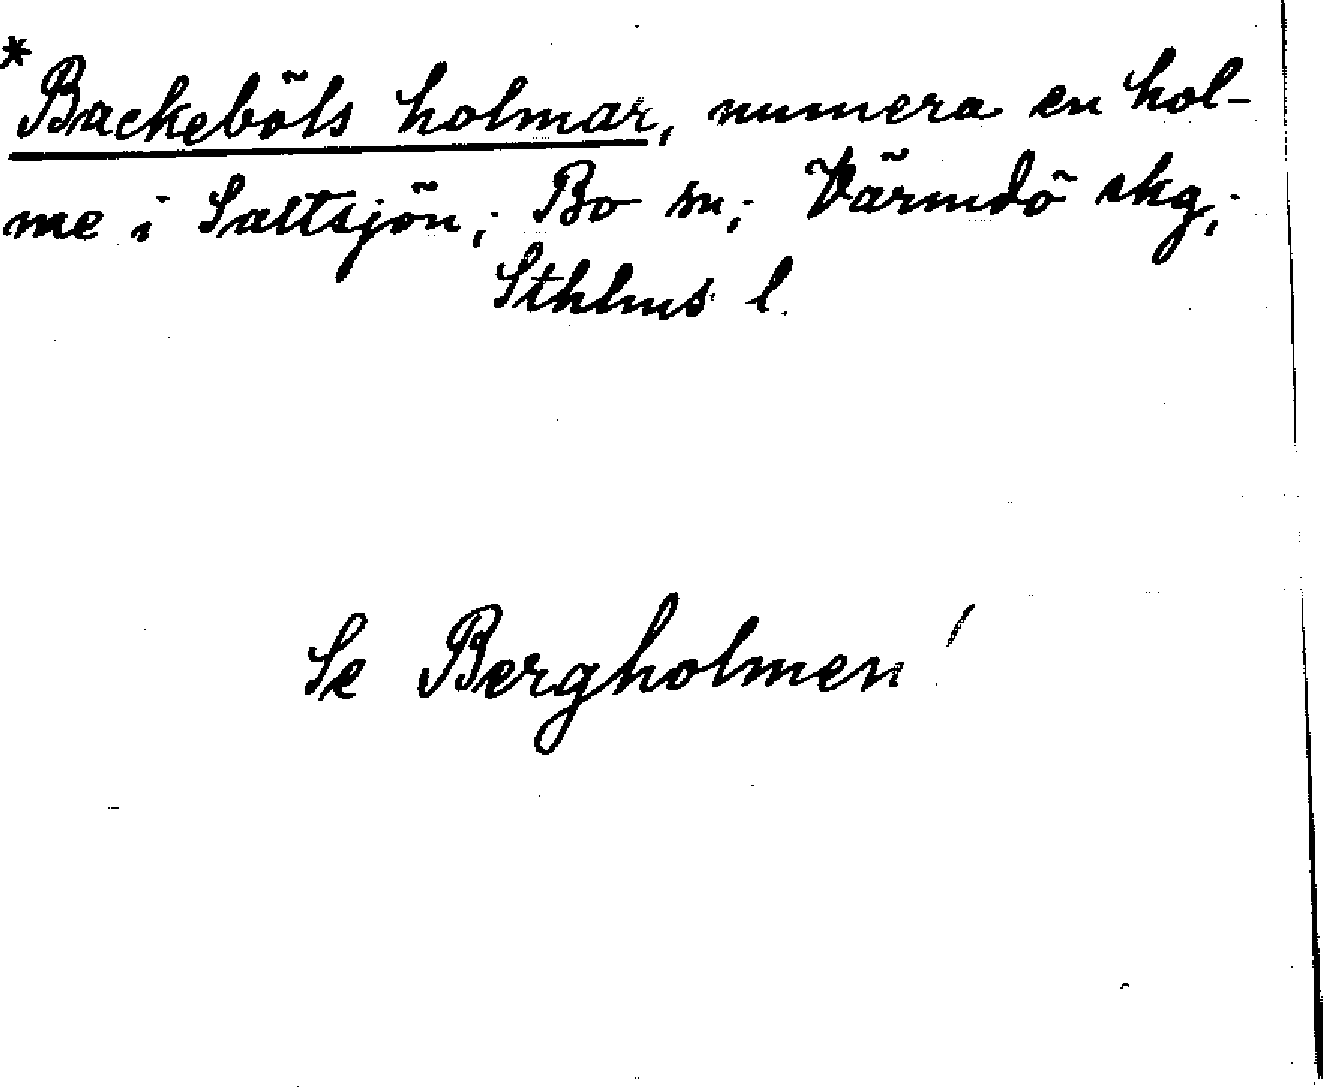 *Backeböls holmar, numera en hol-
me i Saltsjön; Bo sn; Värmdö skg;
Sthlms l.
Se Bergholmen!